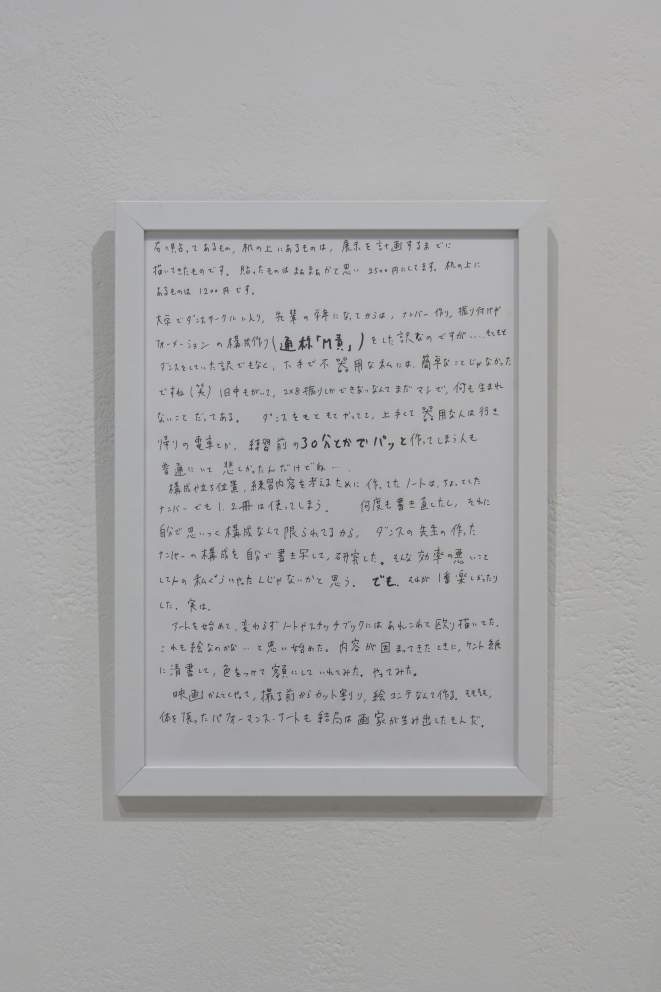 右に貼ってあるもの、机の上にあるものは、展示を計画するまでに
描いてきたものです。貼ったものはまぁまぁかと思い 2500円にしてます。机の上に
あるものは 1200円です。
大学でダンスサークルに入り、先輩の学年になってからは、ナンバー作り、振り付けや
フォーメーションの構成作り(通称「M責」)をした訳なのですが....そもそも
ダンスをしていた訳でもなく、下手で不器用な私には、簡単なことじゃなかった
ですね(笑) 1日中もがいて、2×8振りしかできないなんてまだマシで、何も生まれ
ないことだってある。 ダンスをもともとやってて、上手くて器用な人は行き
帰りの電車とか、練習前の30分とかでパッと作ってしまう人も
普通にいて 悲しかったんだけどね….
構成や立ち位置、練習内容を考えるために作ってたノートは、ちょっとした
ナンバーでも1、2冊は使ってしまう。 何度も書き直したし、それに
自分で思いつく構成なんて限られてるから、ダンスの先生の作った
ナンバーの構成を自分で書き写して、研究した。そんな効率の悪いこと
してんの私ぐらいやったんじゃないかと思う。でも、それが1番楽しかったり
した、実は。
アートを始めて、変わらずノートやスケッチブックにはあれこれて殴り描いてた。
これも絵なのかな…と思い始めた。内容が固まってきたときに、ケント紙
に清書して、色をつけて額にしていれてみた。やってみた。
映画かんとくやって、撮る前からカット割り、絵コンテなんて作る。そもそも、
体を張ったパフォーマンス・アートも結局は画家が生み出したもんだ。